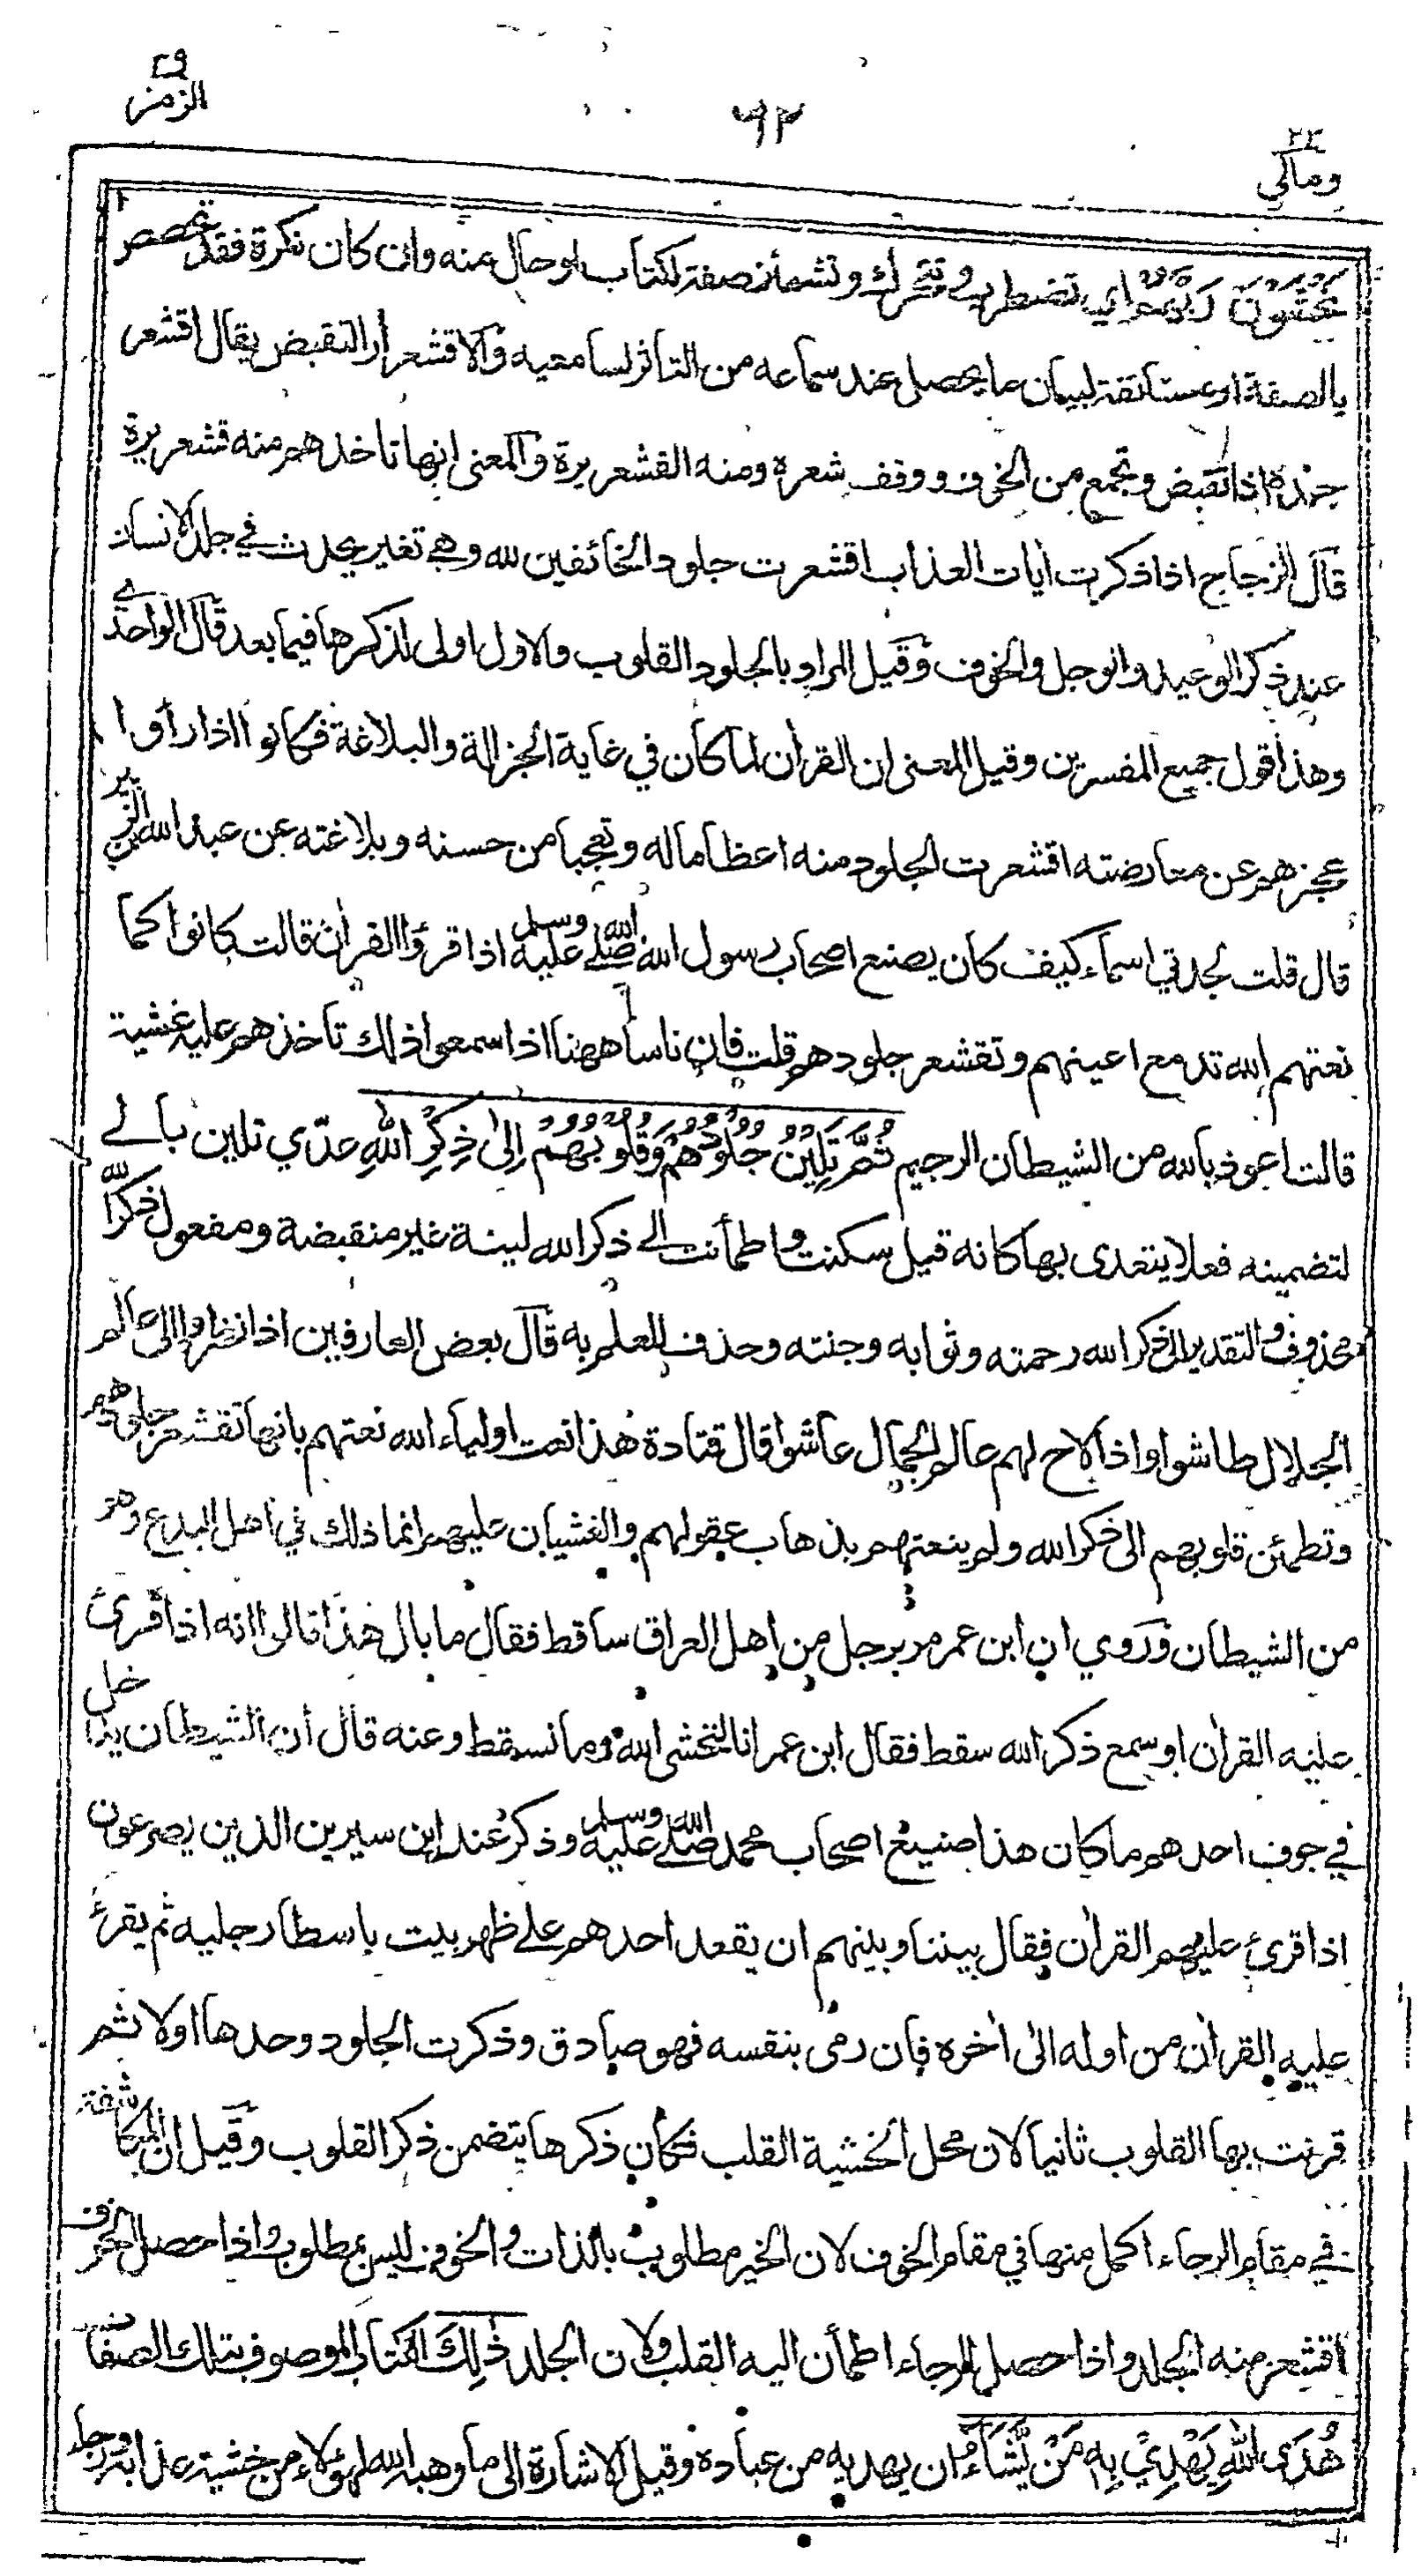 ٣٩
الزمر
٩٢
٢٣
ومالي
يَخْشَوْنَ رَبَّهُمْ اي تضطرب وتتحرك وتشمئز صفة لكتاب او حال منه وان كان نكرة فقد تخصص
بالصفة او مستانفة لبيان ما يحصل عند سماعه من التأثر لسامعيه والاقشعرار التقبض يقال اقشعر
جلده اذا تقبض وتجمع من الخوف ووقف شعره ومنه القشعريرة والمعنى انها تاخذهم منه قشعريرة
قال الزجاج اذا ذكرت أيات العذاب اقشعرت جلود الخائفين لله وهي تغير يحدث في جلد الانسان
عند ذكر الوعيد والوجل والخوف وقيل المراد بالجلود القلوب والاول اولى لذكرها فيما بعد قال الواحدي
وهذا قول جميع المفسرين وقيل المعنى ان القرأن لما كان في غاية الجزالة والبلاغة فكانوا اذا رأوا
عجزهم عن معارضته اقشعرت الجلود منه اعظاما له وتعجبا من حسنه وبلاغته عن عبد الله بن الزبير
قال قلت لجدتي اسماء كيف كان يصنع اصحاب رسول الله صلى الله عليه وسلم اذا قرؤا القرأن قالت كانوا كما
نعتهم الله تدمع اعينهم وتقشعر جلودهم قلت فان ناسا ههنا اذا سمعوا ذلك تاخذهم عليه غشية
قالت اعوذ بالله من الشيطان الرجيم ثُمَّ تَلِيْنُ جُلُوْدُهُمْ وَقُلُوْبُهُمْ اِلىٰ ذِكْرِ اللهِ عدّي تلين بالى
لتضمينه فعلا يتعدى بها كانه قيل سكنت واطمأنت الى ذكر الله لينة غير منقبضة ومفعول ذكر الله
محذوف والتقدير الى ذكر الله رحمته وثوابه وجنته وحذف للعلم به قال بعض العارفين اذا نظروا الى عالم
الجلال طاشوا واذا لاح لهم عالم الجمال عاشوا قال قتادة هذا نعت اولياء الله نعتهم بانها تقشعر جلودهم
وتطمئن قلوبهم الى ذكر الله ولم ينعتهم بذهاب عقولهم والغشيان عليهم انما ذلك في اهل البدع وهو
من الشيطان وروي ان ابن عمر مر برجل من اهل العراق ساقط فقال ما بال هذا قالوا انه اذا قرئ
عليه القرأن او سمع ذكر الله سقط فقال ابن عمر انا لنخشى الله وما نسقط وعنه قال أن الشيطان يدخل
في جوف احدهم ما كان هذا صنيع اصحاب محمد صلى الله عليه وسلم وذكر عند ابن سيرين الذين يصرعون
اذا قرئ عليهم القرأن فقال بيننا وبينهم ان يقعد احدهم على ظهر بيت باسطا رجليه ثم يقرئ
عليه القرأن من اوله الى أخره فان رمى بنفسه فهو صادق وذكرت الجلود وحدها اولا ثم
قرنت بها القلوب ثانيا لان محل الخشية القلب فكان ذكرها يتضمن ذكر القلوب وقيل ان المكاشفة
في مقام الرجاء اكمل منها في مقام الخوف لان الخير مطلوب بالذات والخوف ليس بمطلوب واذا حصل الخوف
اقشعر منه الجلد واذا حصل الرجاء اطمأن اليه القلب ولان الجلد ذٰلِكَ الكتاب الموصوف بتلك الصفات
هُدَى اللهِ يَهْدِيْ بِهٖ مَنْ يَّشَآءُ ان يهديه من عباده وقيل الاشارة الى ما وهبه الله لهؤلاء من خشية عذابه ورجاء